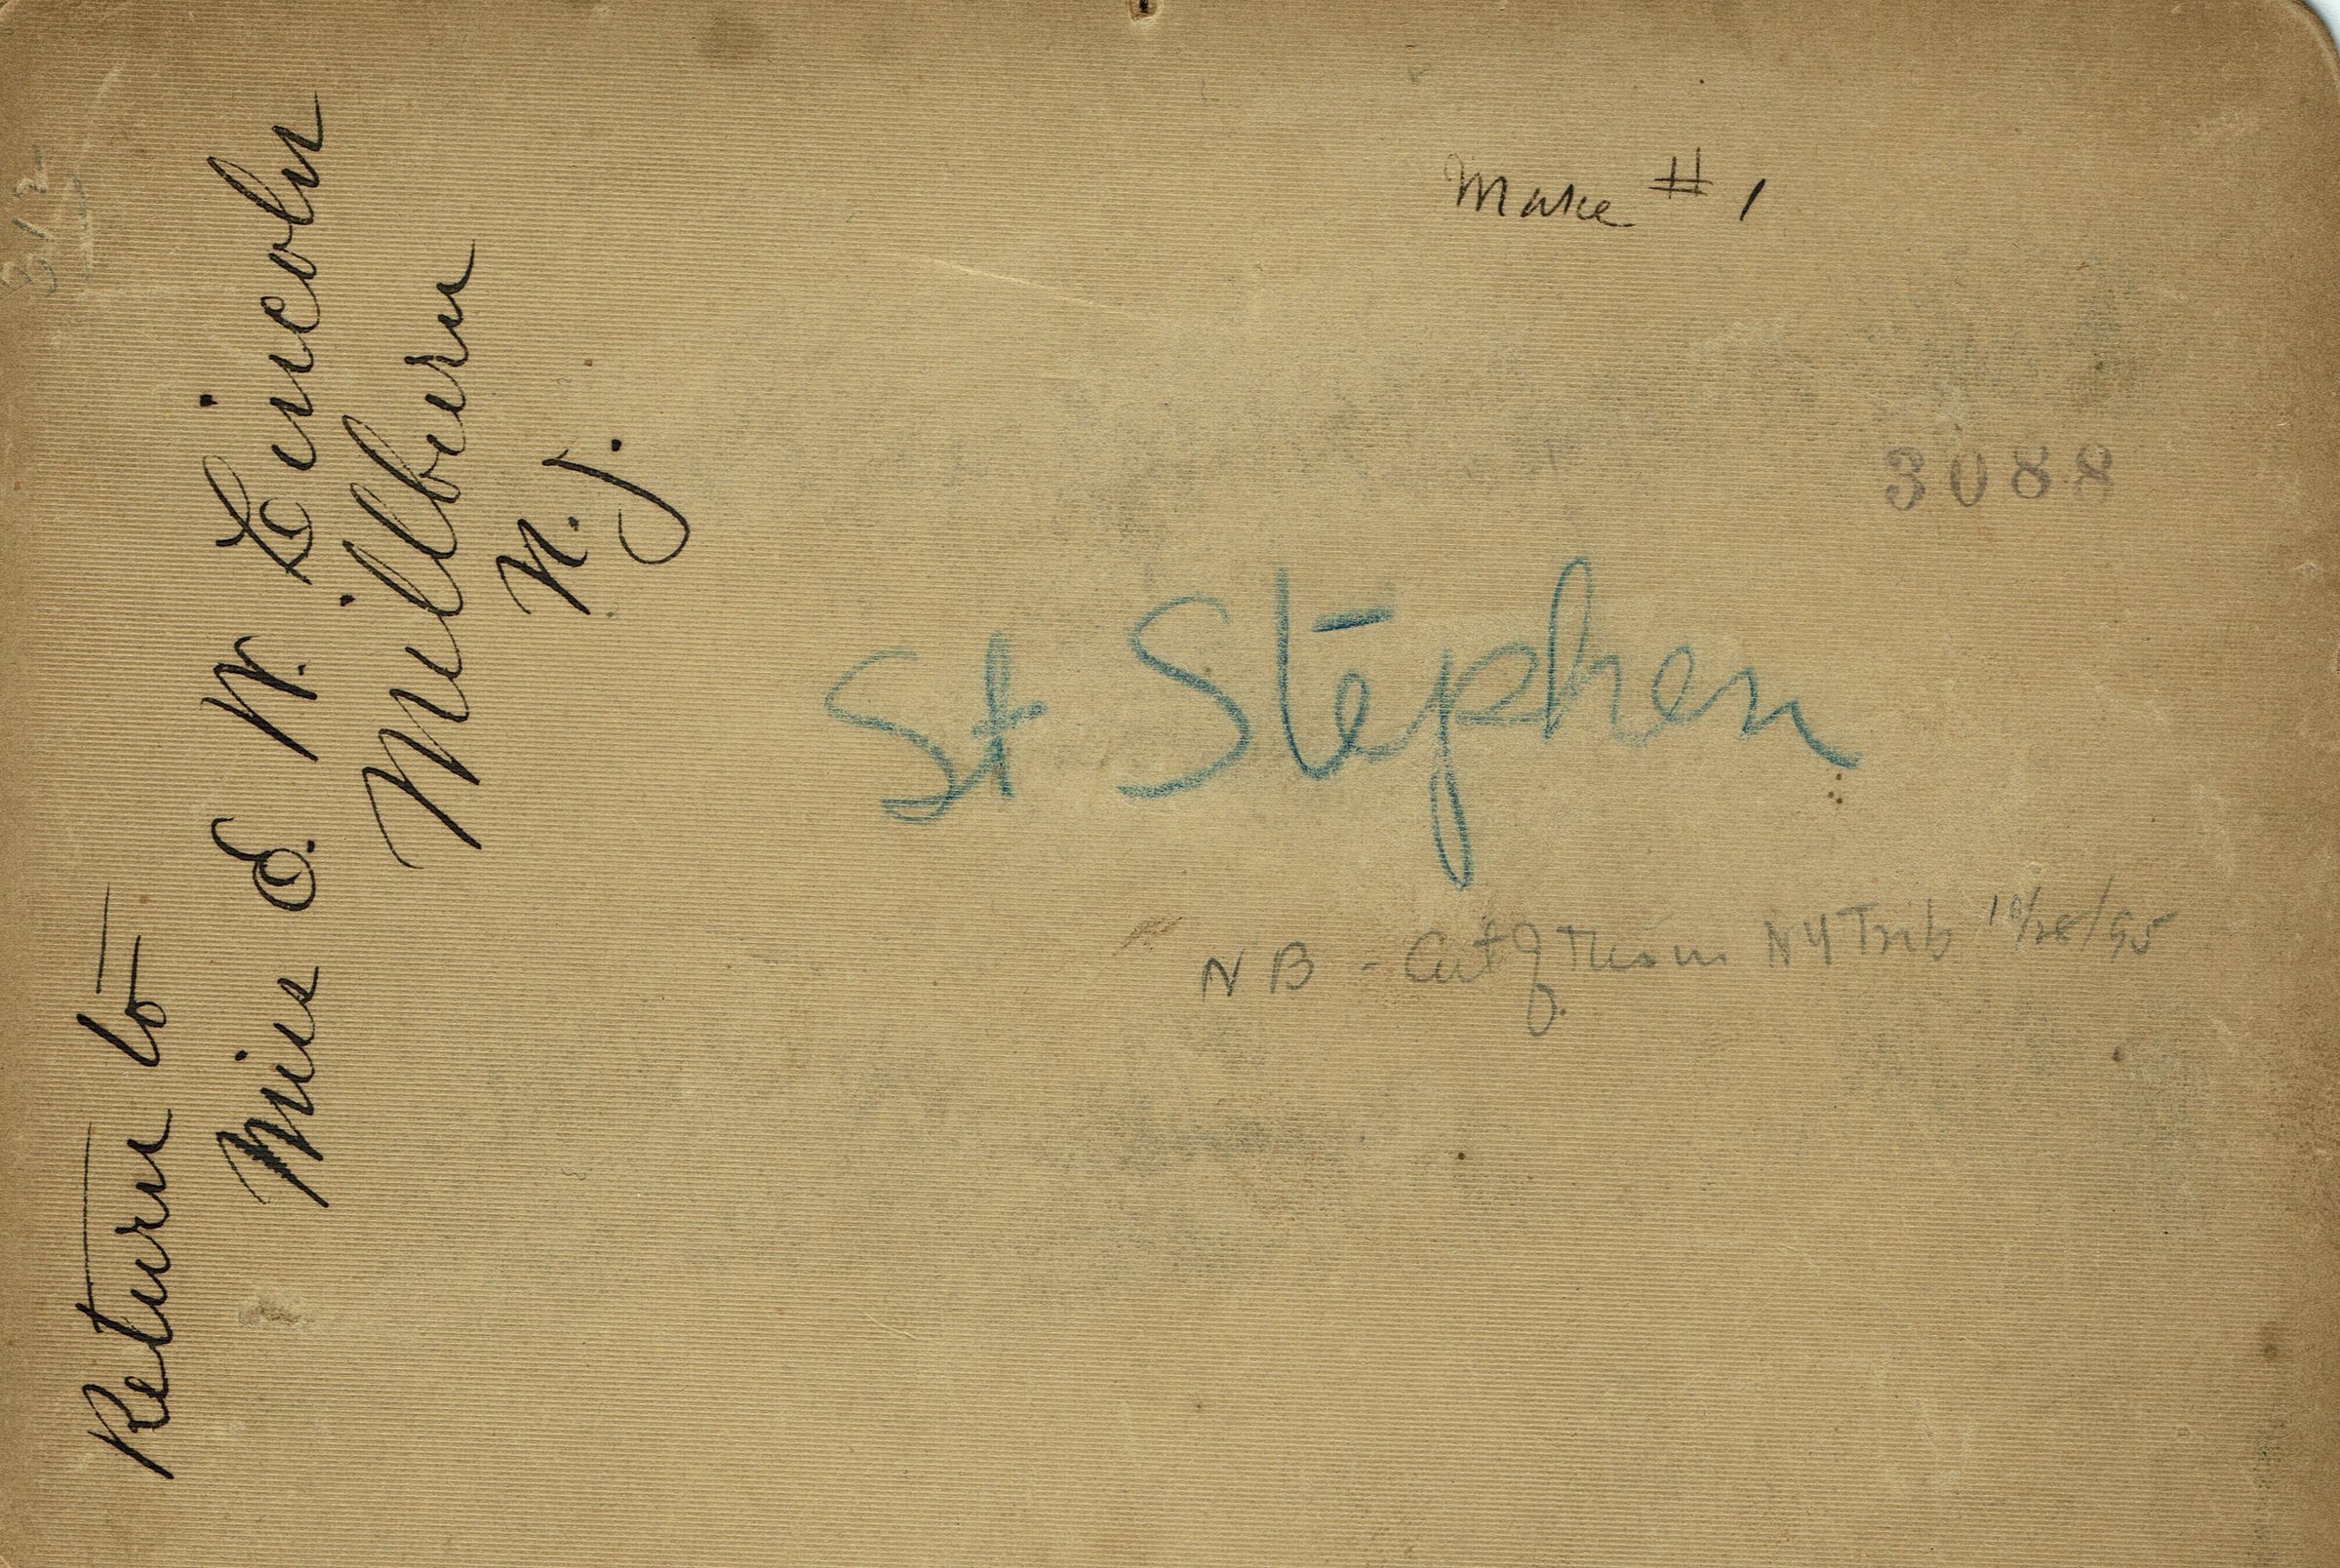 Return to
Miss E. W. Lincoln
Millburn
N. J.
Make # 1
3088
St Stephen
NB - Cut of Thom NY Trib 10/28/95